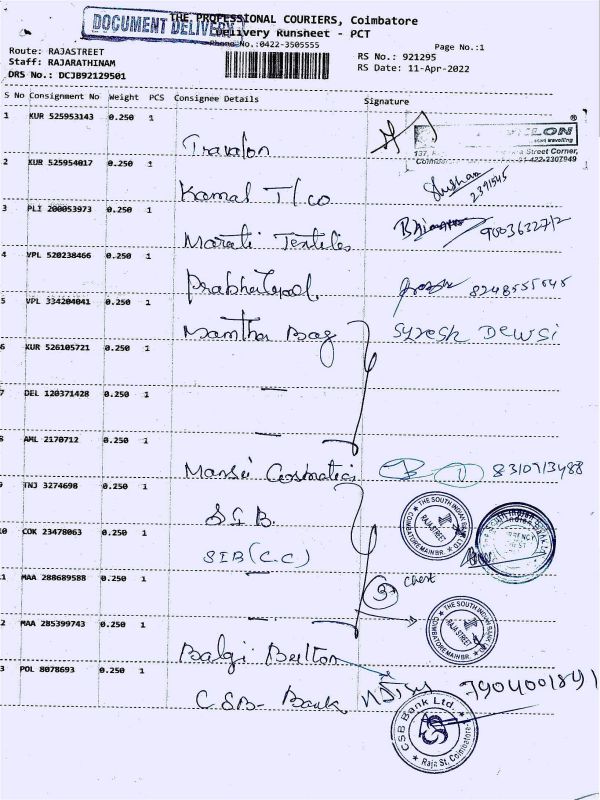 DOCUMENT DELIVERY
THE PROFESSIONAL COURIERS, Coimbatore
Delivery Runsheet - PCT
Phone No.:0422-3505555
Page No.:1
Route: RAJASTREET
RS No.: 921295
Staff: RAJARATHINAM
RS Date: 11-Apr-2022
DRS No.: DCJB92129501
S No Consignment No Weight PCS Consignee Details Signature
1 KUR 525953143 0.250 1
Travalon
2 KUR 525954017 0.250 1
Kamal T/co
2391545
3 PLI 200053973 0.250 1
Marati Textiles
9003632712
4 VPL 520238466 0.250 1
8248555545
5 VPL 334204041 0.250 1
Mamtha Bag Syresh Dewsi
6 KUR 526105721 0.250 1
7 DEL 120371428 0.250 1
8 AML 2170712 0.250 1
Mansi Cosmatics 1 8310713488
9 TNJ 3274698 0.250 1
S.I.B.
THE SOUTH INDIAN BANK LTD
RAJA STREET
COIMBATORE MAIN BR.
10 COK 23478063 0.250 1
SIB (C.C)
11 MAA 288689588 0.250 1
3 chest
2 MAA 285399743 0.250 1
THE SOUTH INDIAN BANK LTD
RAJA STREET
COIMBATORE MAIN BR.
Balgi Belton
3 POL 8078693 0.250 1
C.S.B- Bank 7904001841
CSB Bank Ltd.
Raja St, Coimbatore